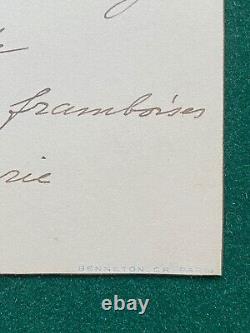 e
framboises
rie
BENNETON GR. PARIS